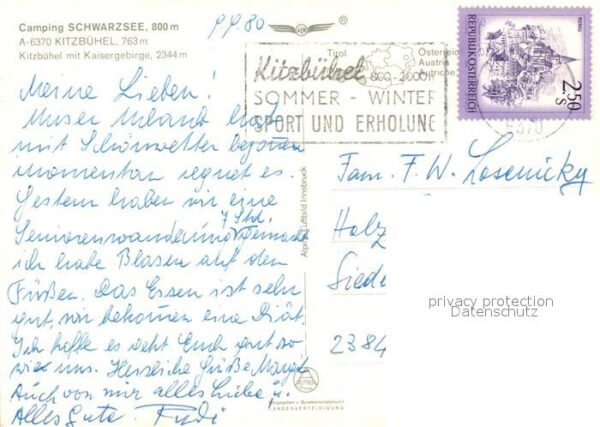 Camping SCHWARZSEE, 800 m
A-6370 KITZBÜHEL, 763 m
Kitzbühel mit Kaisergebirge, 2344 m
Tirol
Österreich
Austria
Autriche
Kitzbühel
800 - 2000 m
SOMMER - WINTER
SPORT UND ERHOLUNG
REPUBLIK ÖSTERREICH
MURAU
2.50
S
6370
Meine Lieben!
Unser Urlaub hat
mit Schönwetter begonnen
momentan regnet es.
Gestern haben wir eine
7 Std.
Seniorenwanderung gemacht
ich habe Blasen auf den
Füßen. Das Essen ist sehr
gut, wir bekommen eine Diät.
Ich hoffe es geht Euch gut so
wie uns. Herzliche Grüße Margit
Auch von mir alles Liebe u.
Alles Gute. Rudi
Alpine Luftbild Innsbruck
Fam. F. W. Losenicky
Holz
Siede
2384
privacy protection
Datenschutz
LANDESVERTEIDIGUNG